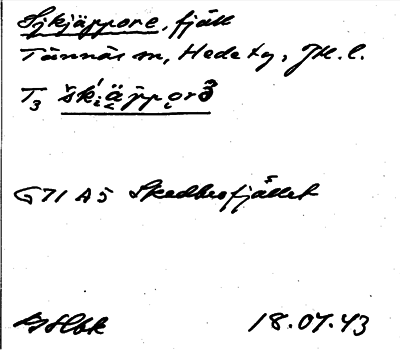 Sjkjäppore, fjäll
Tännäs sn, Hede tg, Jtl. l.
T3 šk̍i̯ä̬ppo̬rȝ
G71 A5 Skedbrofjället
18.07.43